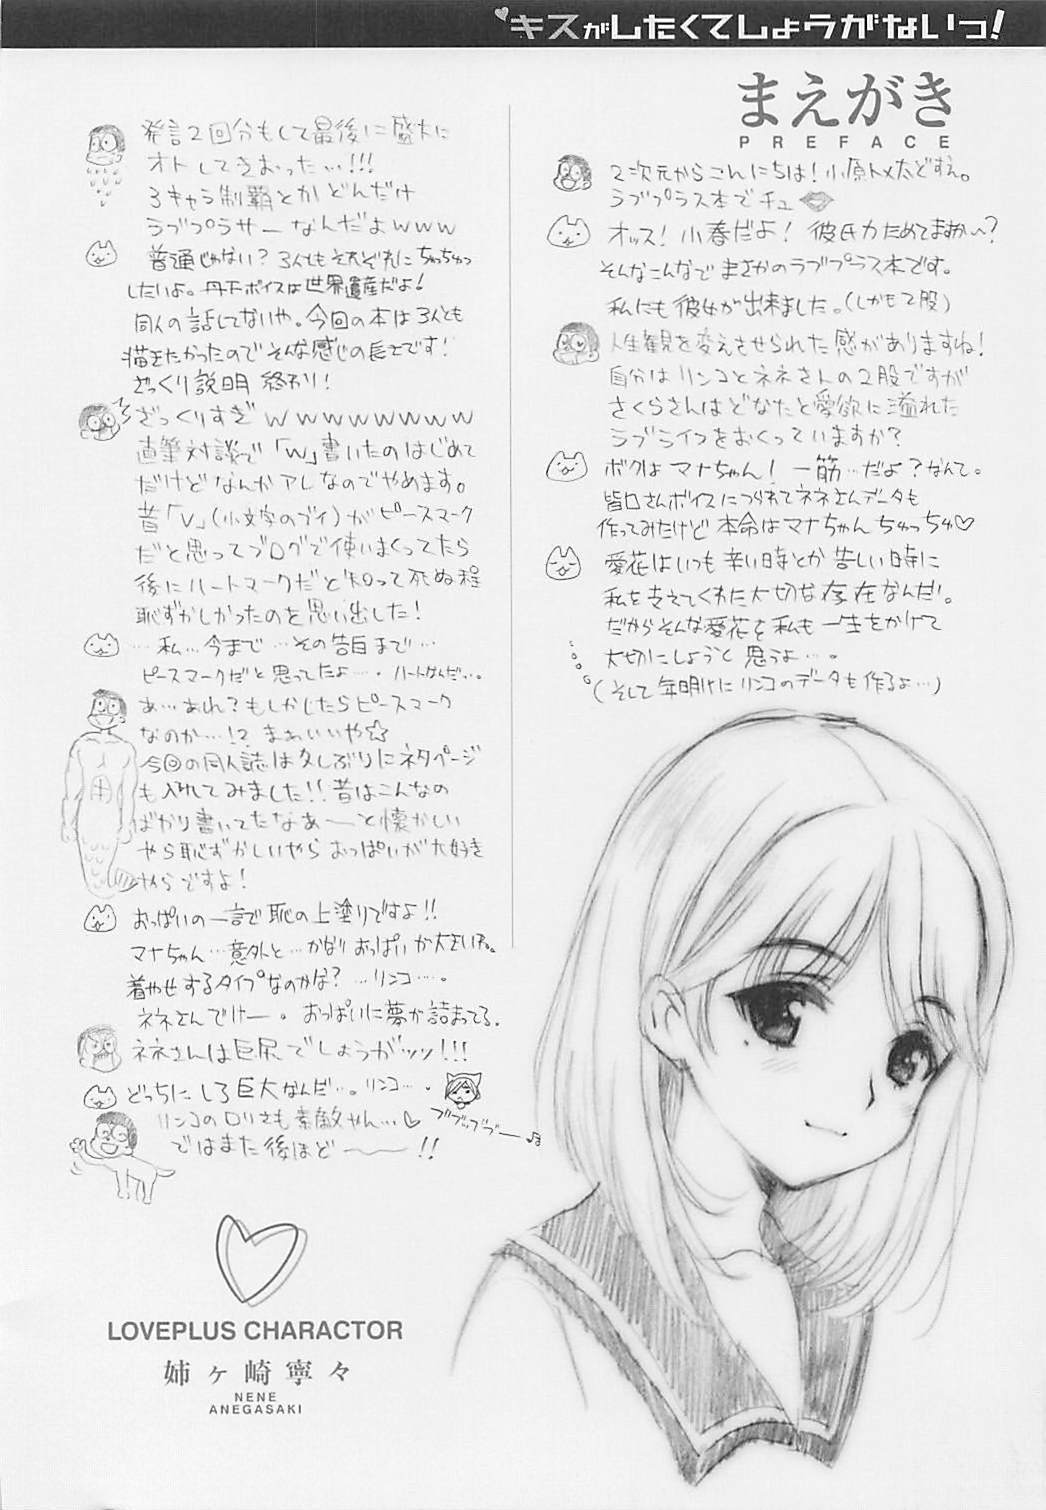 キスがしたくてしょうがないっ!
まえがき
PREFACE
2次元からこんにちは!小原トメ太どすえ。
ラブプラス本でチュ
オッス!小春だよ!彼氏力ためてますか〜?
そんなこんなでまさかのラブプラス本です。
私にも彼女が出来ました。(しかも2股)
人生観を変えさせられた感がありますね!
自分はリンコとネネさんの2股ですが
さくらさんはどなたと愛欲に溢れた
ラブライフをおくっていますか?
ボクはマナちゃん!一筋…だよ?なんて。
皆口さんボイスにつられてネネさんデータも
作ってみたけど本命はマナちゃんちゅっちゅ♡
愛花はいつも辛い時とか苦しい時に
私を支えてくれた大切な存在なんだ!。
だからそんな愛花を私も一生をかけて
大切にしようと思うよ…。
(そして年明けにリンコのデータも作るよ…)
発言2回分もして最後に盛大に
オトしてきおった…!!!
3キャラ制覇とかどんだけ
ラブプラサーなんだよwww
普通じゃない?3人ともそれぞれにちゅっちゅっ
したいよ。丹下ボイスは世界遺産だよ!
同人の話してないや。今回の本は3人とも
描きたかったのでそんな感じの長さです!
ざっくり説明終わり!
ざっくりすぎwwwwwwww
直筆対談で「w」書いたのはじめて
だけどなんかアレなのでやめます。
昔「v」(小文字のブイ)がピースマーク
だと思ってブログで使いまくってたら
後にハートマークだと知って死ぬ程
恥ずかしかったのを思い出した!
…私…今まで…その告白まで…
ピースマークだと思ってたよ…。ハートなんだ…。
あ…あれ?もしかしたらピースマーク
なのか…!?まぁいいや☆
今回の同人誌は久しぶりにネタページ
も入れてみました!!昔はこんなの
ばかり書いてたなあ――と懐かしい
やら恥ずかしいやらおっぱいが大好き
やらですよ!
おっぱいの一言で恥の上塗りですよ!!
マナちゃん…意外と…かなりおっぱいが大きい子。
着やせするタイプなのかな?…リンコ…。
ネネさんでけー。おっぱいに夢が詰まってる。
ネネさんは巨尻でしょうがッッ!!!
どっちにしろ巨大なんだ…。リンコ…。
リンコのロリさも素敵やん…♡
ブブッブブー♪
ではまた後ほど――!!
LOVEPLUS CHARACTOR
姉ヶ崎寧々
NENE
ANEGASAKI